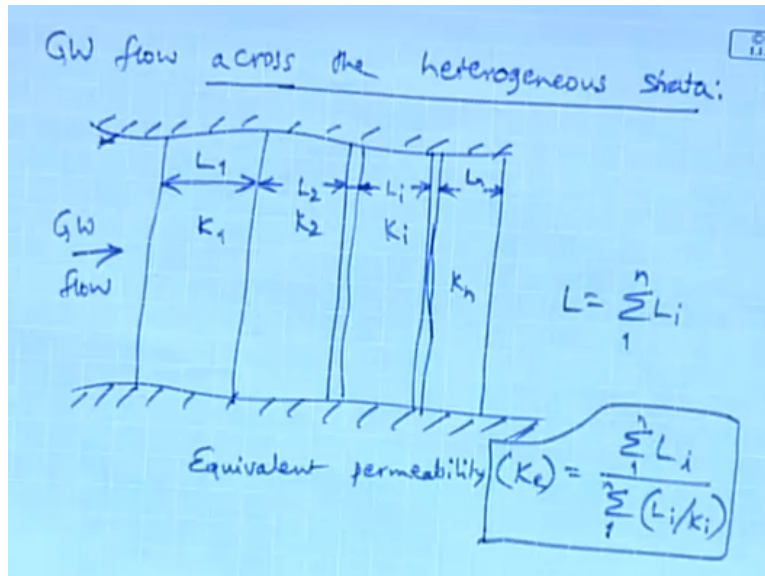 GW flow across the heterogeneous strata:
L1 L2 Li Ln
GW flow
K1 K2 Ki Kn
L = n Σ 1 Li
Equivalent permeability (Ke) = n Σ 1 Li / n Σ 1 (Li/Ki)